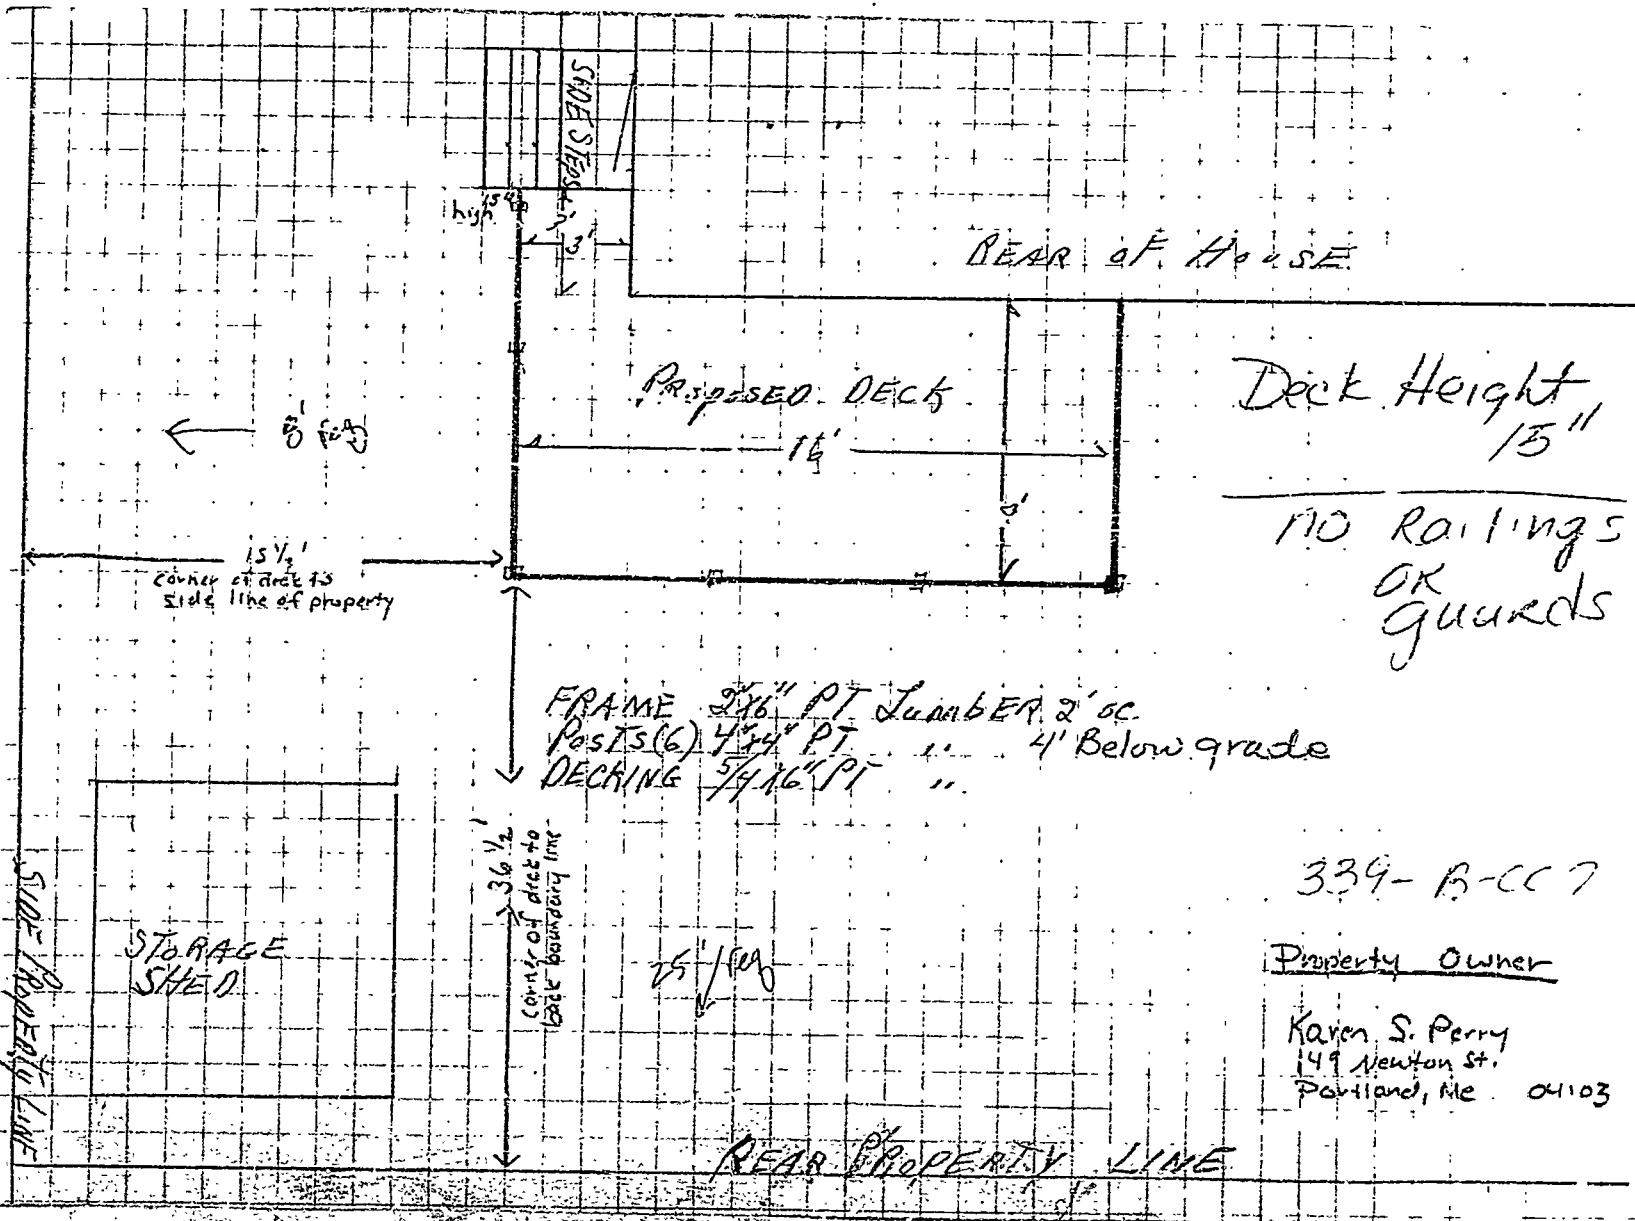 SIDE STEPS
high 15"
3'
REAR OF HOUSE
PROPOSED DECK
16'
8'
Deck Height
15"
no Railings
OR
guards
8' req
15 1/2'
corner of deck to
side line of property
FRAME 2"x6" PT LumbER 2' oc.
Posts(6) 4"x4" PT " 4' Below grade
DECKING 5/4x6" PT "
36 1/2'
corner of deck to
back boundary line
25' req
STORAGE
SHED
SIDE PROPERTY LINE
339-B-
Property Owner
Karen S. Perry
149 Newton St.
Portland, Me 04103
REAR PROPERTY LINE